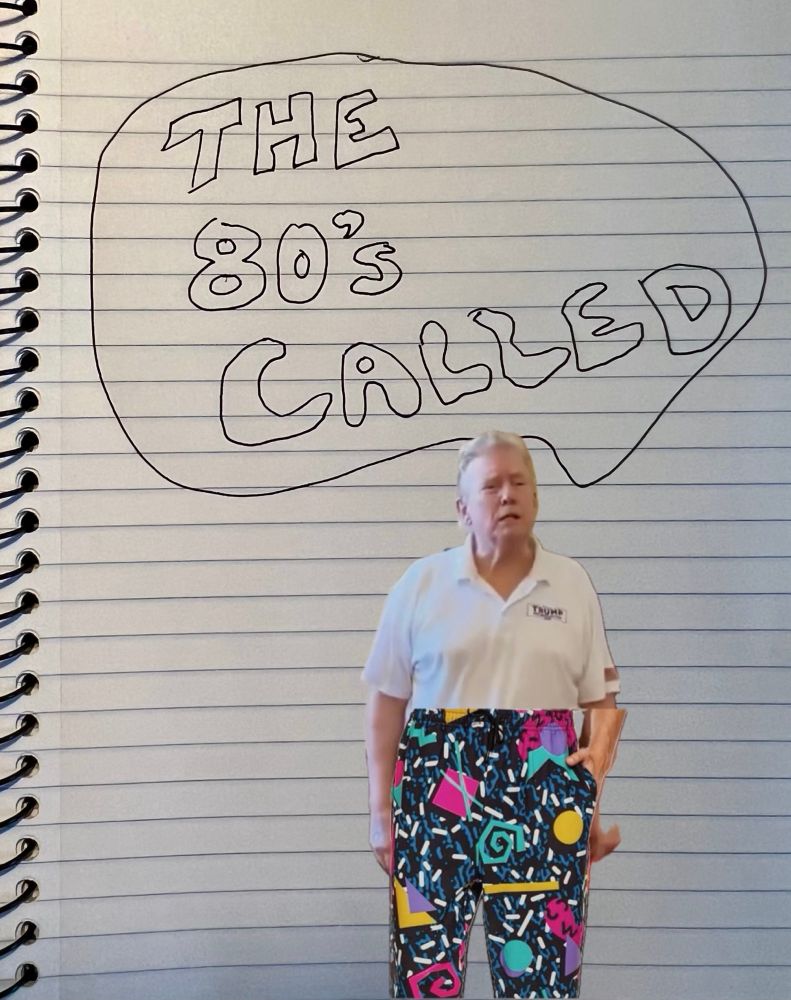 THE
80's
CALLED
TRUMP